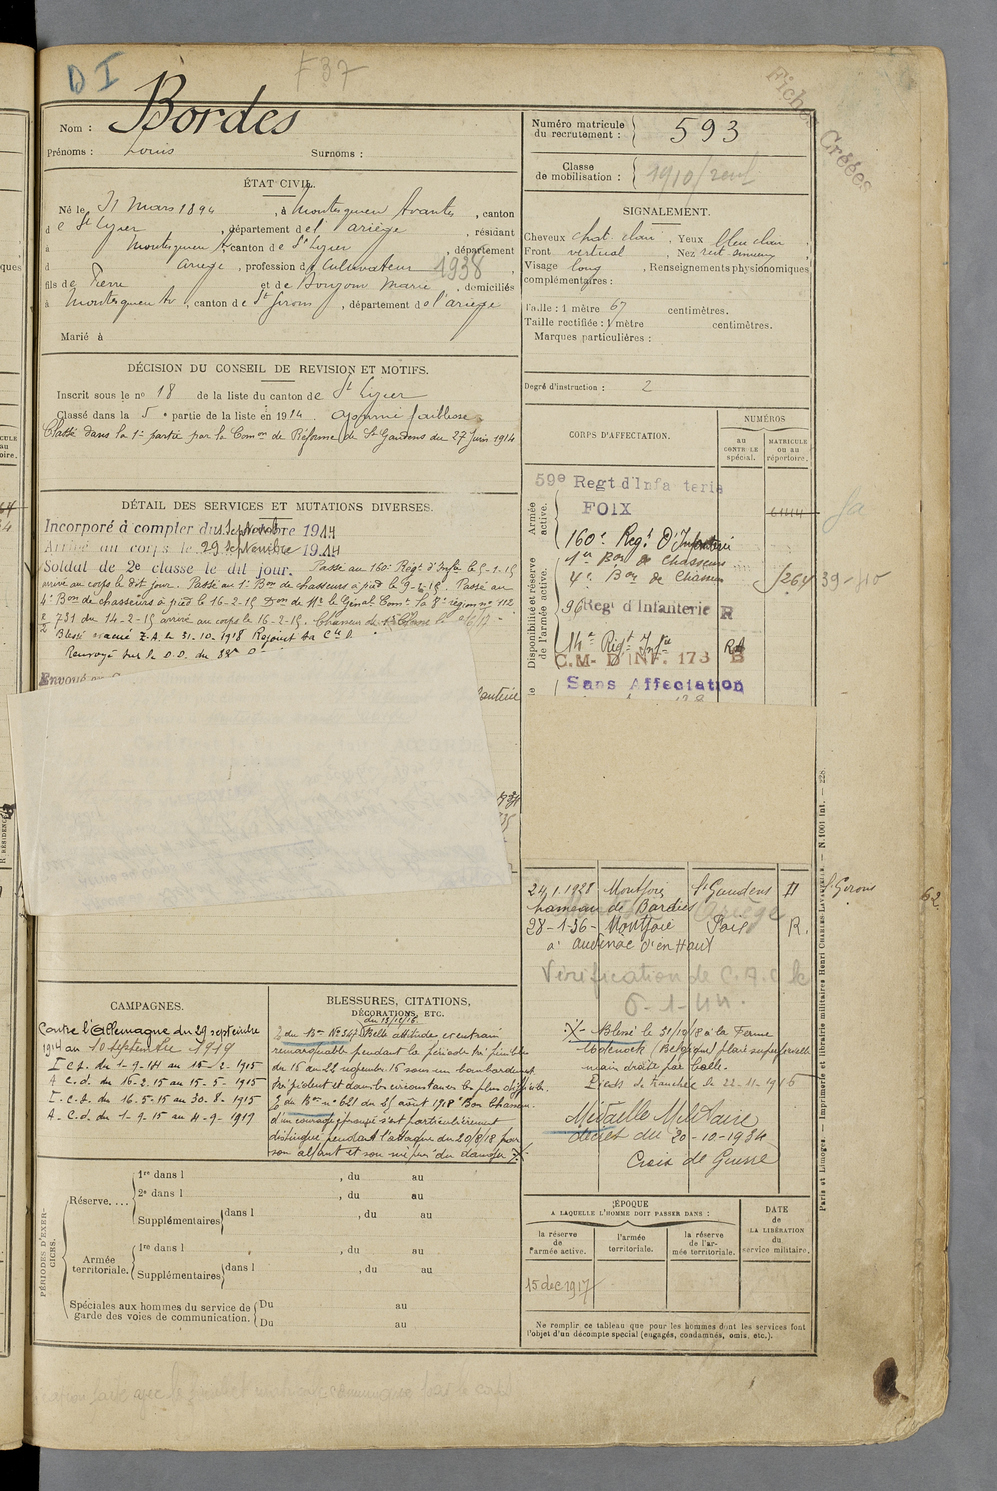 D I
F 37
Fiches Créées
Nom : Bordes
Prénoms : Louis Surnoms :
Numéro matricule
du recrutement : 593
Classe
de mobilisation : 1910
ÉTAT CIVIL.
Né le 31 Mars 1894, à Montesquieu Avantès, canton
de St Lizier, département de l'Ariège, résidant
à Montesquieu A. canton de St Lizier, département
d Ariège, profession de Cultivateur 1938
fils de Pierre et de Marie, domiciliés
à Montesquieu Av, canton de St Girons, département de l'Ariège
Marié à
SIGNALEMENT.
Cheveux chat. clair, Yeux bleu clair,
Front vertical, Nez rect.
Visage long, Renseignements physionomiques
complémentaires :
Taille : 1 mètre 67 centimètres.
Taille rectifiée : 1 mètre centimètres.
Marques particulières :
Degré d'instruction : 2
DÉCISION DU CONSEIL DE REVISION ET MOTIFS.
Inscrit sous le no 18 de la liste du canton de St Lizier
Classé dans la 5e partie de la liste en 1914. Ajourné faiblesse
Classé dans la 1e partie par la Comon de Réforme de St Gaudens du 27 Juin 1914
CORPS D'AFFECTATION.
NUMÉROS
au
CONTRÔLE
spécial.
MATRICULE
ou au
répertoire.
Armée
active.
59e Regt d'Infanterie
FOIX
160e Regt D'Infanterie
1er Bon de Chasseurs
4e Bon de Chasseurs 5264 39-40
Disponibilité et réserve
de l'armée active.
96 Regt d'Infanterie R
14e Regt Infie
C.M. D'INF. 173 B
Sans Affectation
DÉTAIL DES SERVICES ET MUTATIONS DIVERSES.
Incorporé à compter du 1 Septembre 1914
Arrivé au corps le 29 Septembre 1914
Soldat de 2e classe le dit jour. Passé au 160e Régt d'Infie le 9-1-15
arrivé au corps le dit jour. Passé au 1er Bon de chasseurs à pied le 9-1-15. Passé au
4e Bon de chasseurs à pied le 16-2-15 Don de Mr le Génal Comt la 8e région no 112
731 du 14-2-15 arrivé au corps le 16-2-15. Chasseur de 1e Classe le
Blessé évacué Z.A. le 31-10-1918 Rejoint sa Cie le
Renvoyé sur le D.D. du
Envoyé en
24.1.1928 Montjoie St Gaudens D St Girons
hameau de Bardies
28-1-36- Montjoie Foix R.
à Audinac d'en Haut
Vérification de C.A.C. le
6-1-44.
62
CAMPAGNES.
Contre l'Allemagne du 29 septembre
1914 au 10 septembre 1919
I C.d. du 1-9-14 au 15-2-1915
A C.d. du 16-2-15 au 15-5-1915
I C.d. du 16-5-15 au 30-8-1915
A C.d. du 1-9-15 au 4-9-1919
BLESSURES, CITATIONS,
DÉCORATIONS, ETC.
du 13/12/16
du Bon No 347 Belle attitude et entrain
remarquable pendant la période très pénible
du 15 au 22 novembre 15 sous un bombardement
très violent et dans les circonstances les plus difficiles.
du Bon no 621 du 25 août 1918 "Bon Chasseur
d'un courage éprouvé s'est particulièrement
distingué pendant l'attaque du 20/8/18 par
son allant et son mépris du danger
Blessé le 31/10/18 à la Ferme
(Belgique) plaie superficielle
main droite par balle.
Pieds de tranchée le 22-11-1916
Médaille Militaire
décret du 30-10-1934
Croix de Guerre
PÉRIODES D'EXERCICES.
Réserve....
1re dans l , du au
2e dans l , du au
Supplémentaires dans l , du au
Armée
territoriale.
1re dans l , du au
Supplémentaires dans l , du au
Spéciales aux hommes du service de
garde des voies de communication.
Du au
Du au
ÉPOQUE
A LAQUELLE L'HOMME DOIT PASSER DANS :
la réserve
de
l'armée active.
l'armée
territoriale.
la réserve
de l'ar-
mée territoriale.
DATE
de
LA LIBÉRATION
du
service militaire.
15 dec 1917
Ne remplir ce tableau que pour les hommes dont les services font
l'objet d'un décompte spécial (engagés, condamnés, omis, etc.).
Paris et Limoges. — Imprimerie et librairie militaires Henri CHARLES-LAVAUZELLE. — N. 1001 int. — 228.